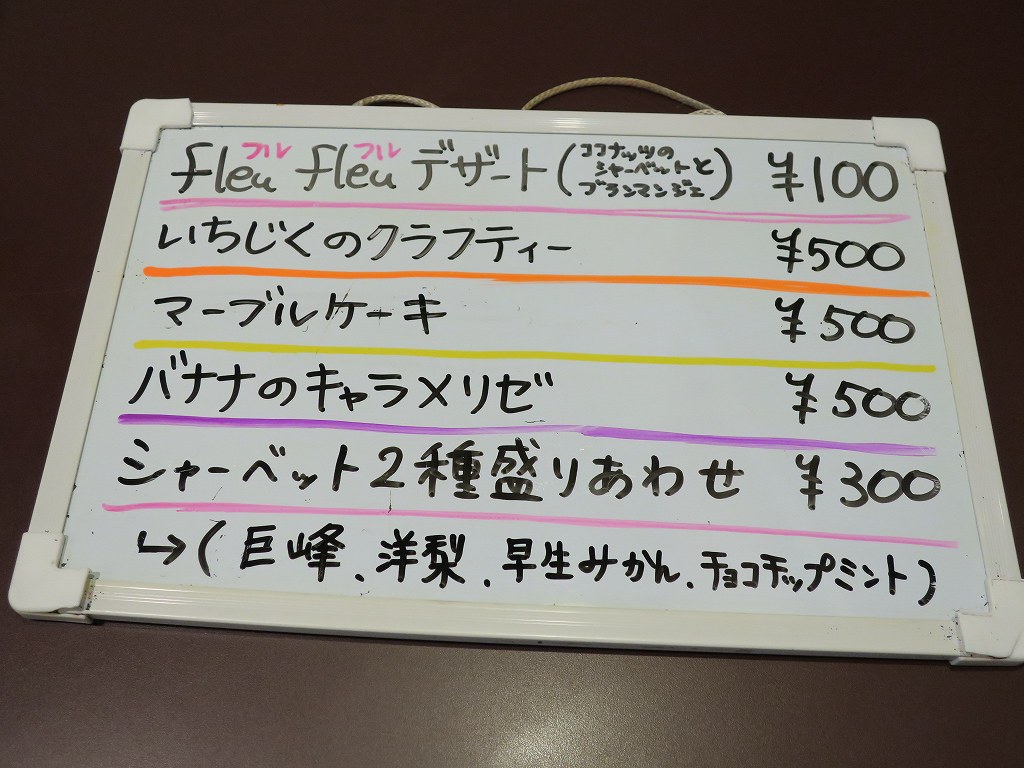 fleu フル fleu フル デザート (ココナッツのシャーベットとブランマンジェ) ¥100
いちじくのクラフティー ¥500
マーブルケーキ ¥500
バナナのキャラメリゼ ¥500
シャーベット2種盛りあわせ ¥300
↳(巨峰、洋梨、早生みかん、チョコチップミント)